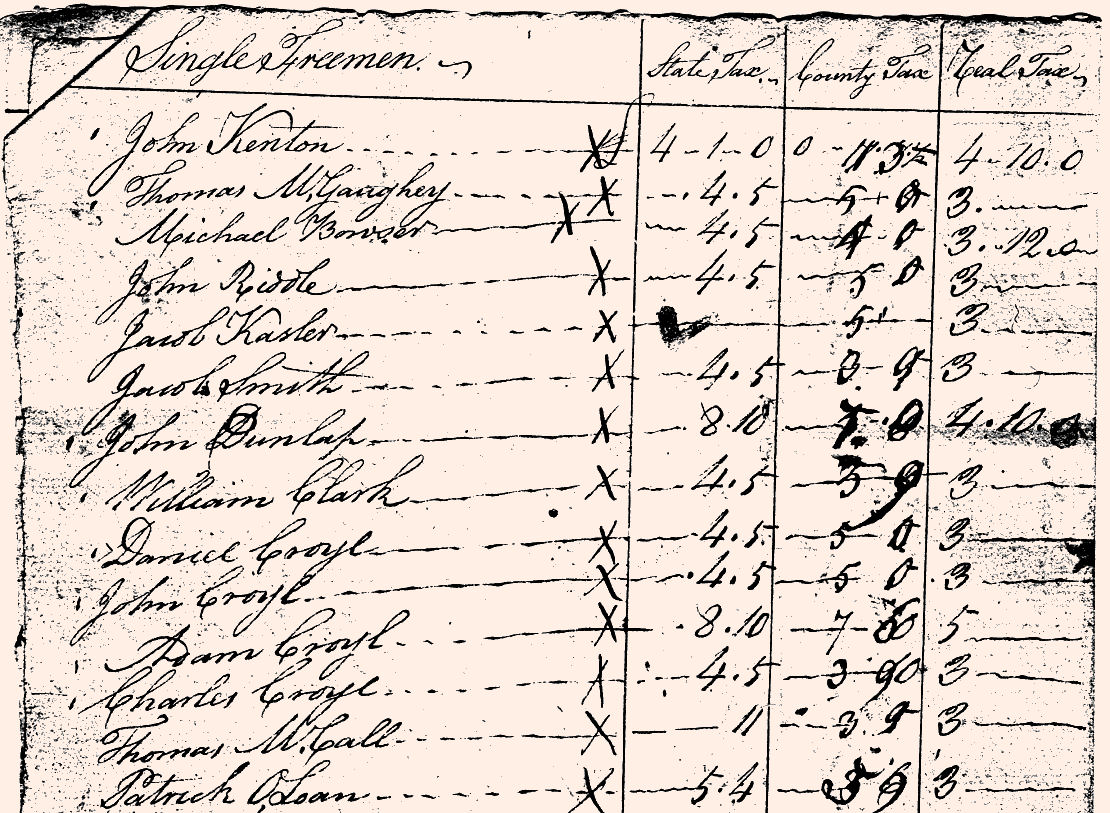 Single Freemen. State Tax. County Tax Teal Tax
John Kenton X 4-1-0 0 4-10.0
Thomas McGaughey X 4.5 5 0 3.
Michael Bowser X 4.5 0 3.12.0
John Riddle X 4.5 5 0 3
Jacob Kasler X 5 3
Jacob Smith X 4.5 3 9 3
John Dunlap X 8.10 7. 4.10.
William Clark X 4.5 3 9 3
Daniel Croyl X 4.5 5 0 3
John Croyl X 4.5 5 0 3
Adam Croyl X 8.10 7 5
Charles Croyl X 4.5 3 3
Thomas McCall X 11 3.9 3
Patrick O,Loan X 5.4 3